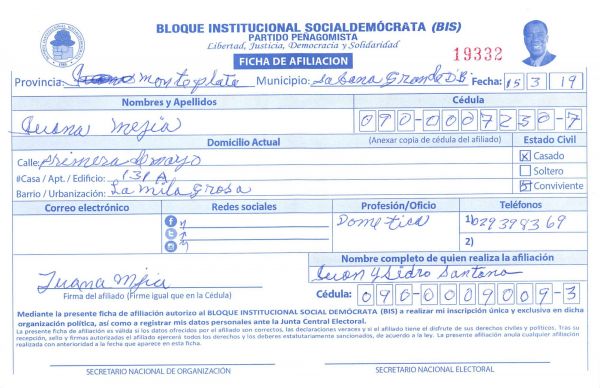 BLOQUE INSTITUCIONAL SOCIALDEMÓCRATA (BIS)
PARTIDO PEÑAGOMISTA
Libertad, Justicia, Democracia y Solidaridad
FICHA DE AFILIACION
19332
Provincia: Monteplata Municipio: Sabana Grande D B Fecha: 15 3 19
Nombres y Apellidos Cédula
Juana Mejia 090-0007230-7
Domicilio Actual (Anexar copia de cédula del afiliado) Estado Civil
Calle: Primera de mayo X Casado
#Casa / Apt. / Edificio: 131 A Soltero
Barrio / Urbanización: La Mila grosa Conviviente
Correo electrónico Redes sociales Profesión/Oficio Teléfonos
Dometica 1) 829 398 3 69
2)
Nombre completo de quien realiza la afiliación
Juana Mejia Ysidro Santana
Firma del afiliado (Firme igual que en la Cédula) Cédula: 090-0009009-3
Mediante la presente ficha de afiliación autorizo al BLOQUE INSTITUCIONAL SOCIAL DEMÓCRATA (BIS) a realizar mi inscripción única y exclusiva en dicha
organización política, así como a registrar mis datos personales ante la Junta Central Electoral.
La presente ficha de afiliación es válida si los datos ofrecidos por el afiliado son correctos, las declaraciones veraces y si el afiliado tiene el disfrute de sus derechos civiles y políticos. Tras su
recepción, sello y firmas autorizadas el afiliado ejercerá todos los derechos y los deberes estatutariamente sancionados, de acuerdo a la ley. La presente afiliación anula cualquier afiliación
realizada con anterioridad a la fecha que aparece en esta ficha.
SECRETARIO NACIONAL DE ORGANIZACIÓN SECRETARIO NACIONAL ELECTORAL